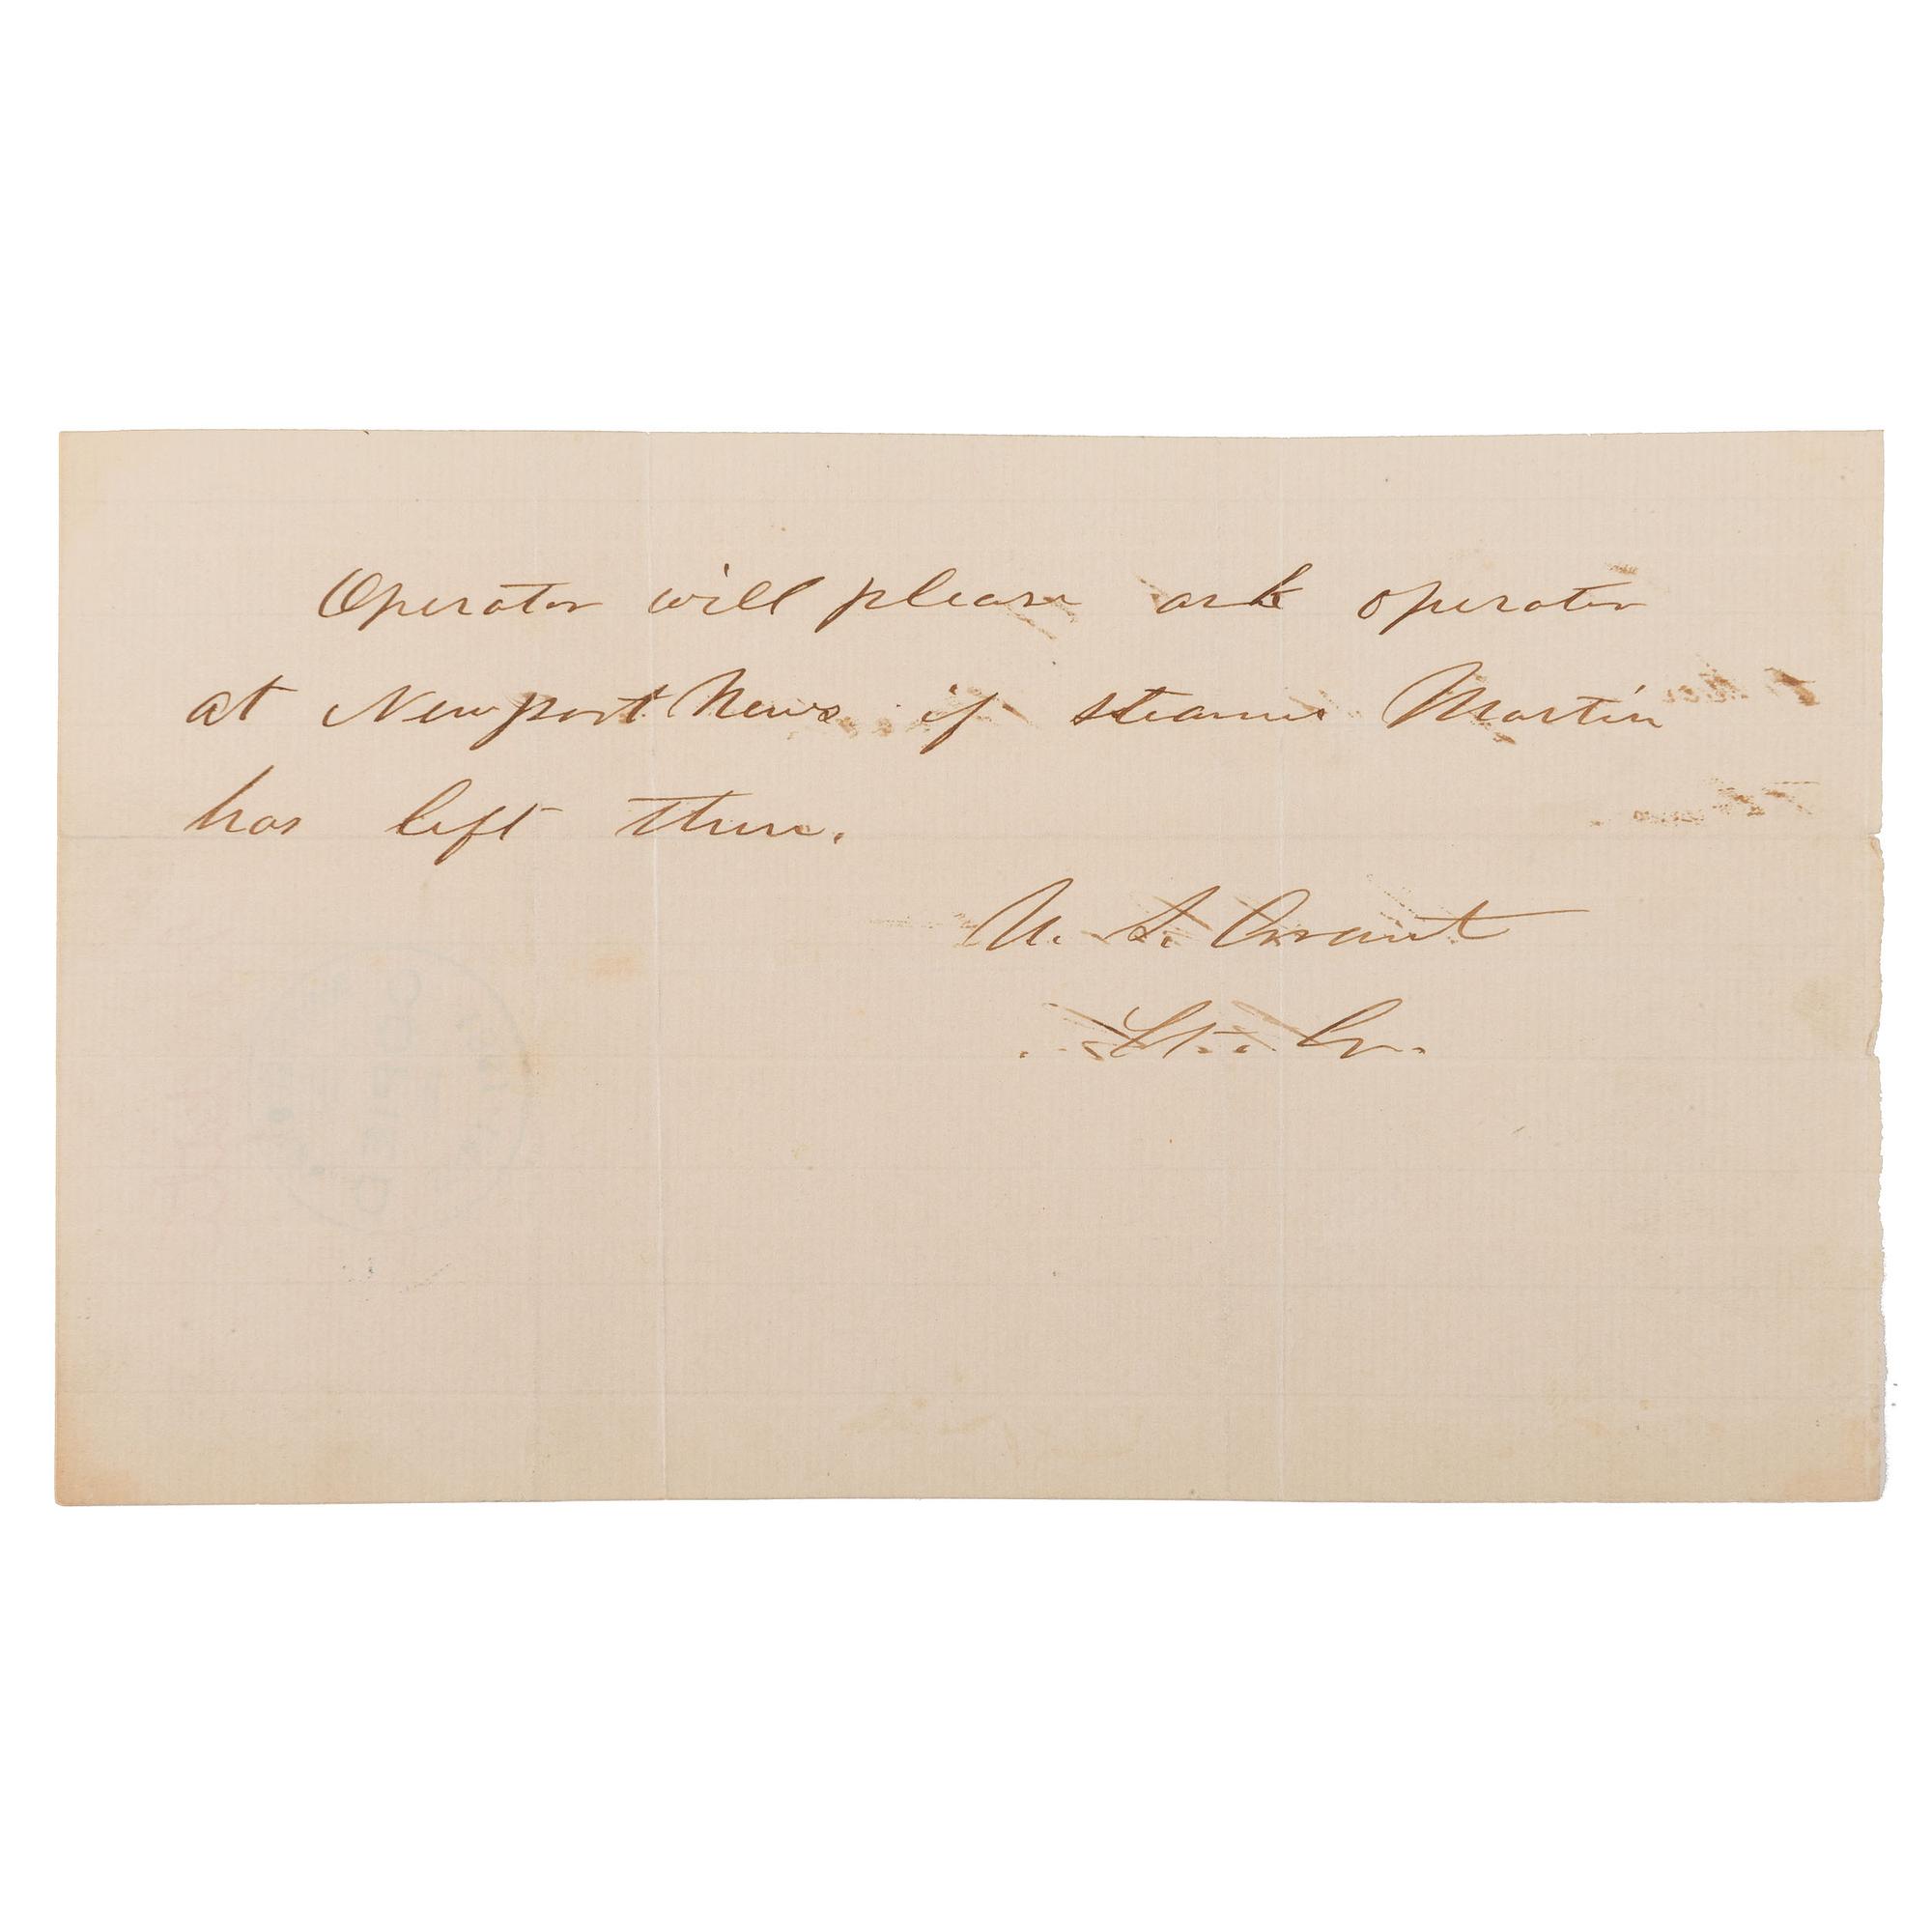 Operator will please ask operator
at Newport News if steamer Martin
has left there.
U. S. Grant
Lt. Gn.